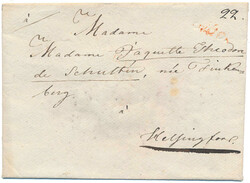 à
22.
Madame
Madame Jaquette Theodor
de Schulthin, née Finken
berg
à
Helsingfors.